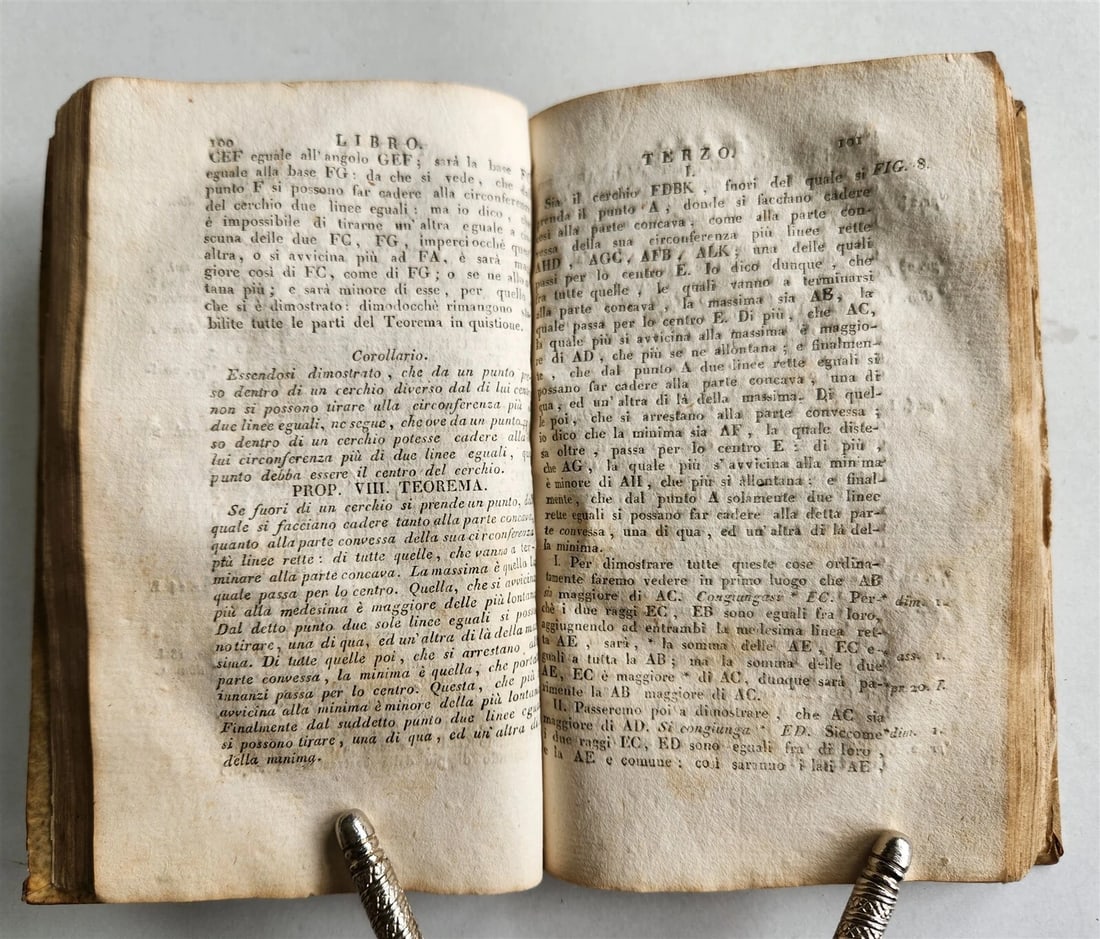 100
LIBRO.
CEF eguale all'angolo GEF; sarà la base
eguale alla base FG: da che si vede, che
punto F si possono far cadere alla circonferen
del cerchio due linee eguali: ma io dico,
é impossibile di tirarne un'altra eguale a
scuna delle due FC, FG, imperciocchè
altra, o si avvicina più ad FA, è sarà
giore così di FC, come di FG; o se ne
tana più; e sarà minore di esse, per quello
che si è dimostrato: dimodocchè rimangono
bilite tutte le parti del Teorema in quistione.
Corollario.
Essendosi dimostrato, che da un punto
so dentro di un cerchio diverso dal di lui
non si possono tirare alla circonferenza più
due linee eguali, ne segue, che ove da un punto
so dentro di un cerchio potesse cadere alla
lui circonferenza più di due linee eguali,
punto debba essere il centro del cerchio.
PROP. VIII. TEOREMA.
Se fuori di un cerchio si prende un punto,
quale si facciano cadere tanto alla parte concava,
quanto alla parte convessa della sua circonferenza
più linee rette: di tutte quelle, che vanno a ter-
minare alla parte concava. La massima è quella
quale passa per lo centro. Quella, che si avvicina
più alla medesima è maggiore delle più
Dal detto punto due sole linee eguali si
no tirare, una di qua, ed un'altra di là della
sima. Di tutte quelle poi, che si arrestano
parte convessa, la minima è quella, che
innanzi passa per lo centro. Questa, che più
avvicina alla minima è minore della più
Finalmente dal suddetto punto due linee
si possono tirare, una di qua, ed un'altra di
della minima.
TERZO.
101
I.
Sia il cerchio FDBK, fuori del quale si FIG. 8.
prenda il punto A, donde si facciano cadere
così alla parte concava, come alla parte con-
vessa della sua circonferenza più linee rette
AHD, AGC, AFB, ALK; una delle quali
passi per lo centro E. Io dico dunque, che
fra tutte quelle, le quali vanno a terminarsi
alla parte concava, la massima sia AB, la
quale passa per lo centro E. Di più, che AC,
la quale più si avvicina alla massima è maggio-
re di AD, che più se ne allontana; e finalmen-
te, che dal punto A due linee rette eguali si
possano far cadere alla parte concava, una di
qua, ed un'altra di là della massima. Di quel-
le poi, che si arrestano alla parte convessa;
io dico che la minima sia AF, la quale diste-
sa oltre, passa per lo centro E: di più,
che AG, la quale più s'avvicina alla minima
è minore di AH, che più si allontana: e final-
mente, che dal punto A solamente due linee
rette eguali si possano far cadere alla detta par-
te convessa, una di qua, ed un'altra di là del-
la minima.
I. Per dimostrare tutte queste cose ordina-
tamente faremo vedere in primo luogo che AB
sia maggiore di AC. Congiungasi * EC. Per- * dim. 1.
chè i due raggi EC, EB sono eguali fra loro,
aggiugnendo ad entrambi la medesima linea ret-
ta AE, sarà, * la somma delle AE, EC e- * ass. 1.
guali a tutta la AB; ma la somma delle due
AE, EC è maggiore * di AC, dunque sarà pa- * pr. 20. 1.
rimente la AB maggiore di AC.
II. Passeremo poi a dimostrare, che AC sia
maggiore di AD. Si congiunga * ED. Siccome * dim. 1.
i due raggi EC, ED sono eguali fra di loro,
e la AE e comune: così saranno i lati AE,